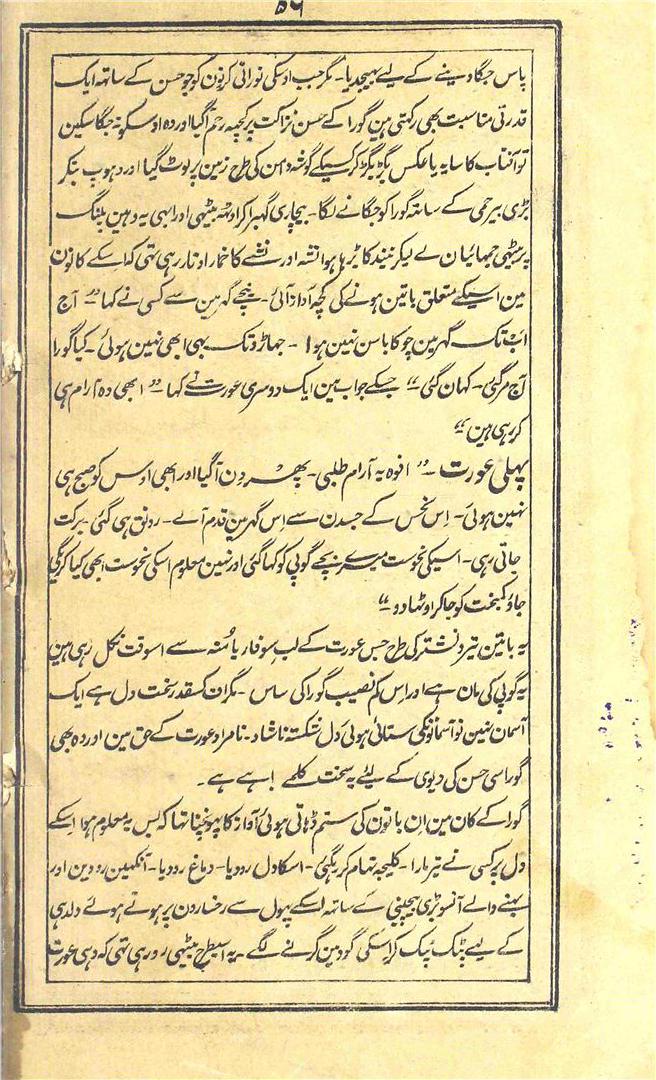 ۵۶
پاس جگا دینے کے لیے بھیجدیا۔ مگر جب اوسکی نورانی کرنون کو جو حسن کے ساتھ ایک
قدرتی مناسبت بھی رکھتی ہین گورا کے حسن نزاکت پر کچھ رحم آگیا اور وہ اوسکو نہ جگا سکین
تو آفتاب کا سایہ یا عکس بگڑ بگڑ کر کسیکے گوشہ دامن کی طرح زمین پر لوٹ گیا اور دہوپ بنکر
بڑی بیرحمی کے ساتھ گورا کو جگانے لگا۔ بیچاری گھبرا کر اوٹھ بیٹھی اور ابھی یہ وہین پلنگ
پر بیٹھی جمہائیان لے لیکر نیند کا بڑہا ہوا نشہ اور نشے کا خمار اوتار رہی تھی کہ اسکے کانون
مین اسیکے متعلق باتین ہونے کی کچھ آواز آئی۔ نیچے گھر مین سے کسی نے کہا۔ ”آج
اب تک گھر مین چوکا باسن نہین ہوا۔ جھاڑو تک بھی ابھی نہین ہوئی۔ کیا گورا
آج مرگئی۔ کہان گئی“ جسکے جواب مین ایک دوسری عورت نے کہا۔ ”ابھی وہ آرام ہی
کر رہی ہین“
پہلی عورت۔ ”افوہ یہ آرام طلبی۔ پھر دن آگیا اور ابھی اوس کو صبح ہی
نہین ہوئی۔ اِس نحس کے جسدن سے اس گھر مین قدم آئے۔ رونق ہی گئی۔ برکت
جاتی رہی۔ اسیکی نحوست میرے بچے گوپی کو کھا گئی اور نہین معلوم اسکی نحوست ابھی کیا کریگی
جاؤ کمبخت کو جاکر اوٹھا دو“
یہ باتین تیر و نشتر کی طرح جس عورت کے لب سوفار یا مُنہ سے اسوقت نکل رہی ہین
یہ گوپی کی مان ہے اور اِس کم نصیب گورا کی ساس۔ مگر ان کسقدر سخت دل ہے ایک
آسمان نہین نو آسمانونکی ستائی ہوئی دل شکستہ ناشاد۔ نامراد عورت کے حق مین اور وہ بھی
گورا سی حسن کی دیوی کے لیئے یہ سخت کلمے! ہے ہے۔
گورا کے کان مین اِن باتون کی ستم ڈہاتی ہوئی آواز کا پہونچنا تھا کہ بس یہ معلوم ہوا اسکے
دل پر کسی نے تیر مارا۔ کلیجہ تھام کر رہگئی۔ اسکا دل رو دیا۔ دماغ رو دیا۔ آنکھین رو دین اور
بہنے والے آنسو بڑی بیچینی کے ساتھ اسکے پھول سے رخسارون پر ہوتے ہوئے دلدہی
کے لیے ٹپک ٹپک کر اسکی گود مین گرنے لگے۔ یہ اسیطرح بیٹھی رو رہی تھی کہ وہی عورت